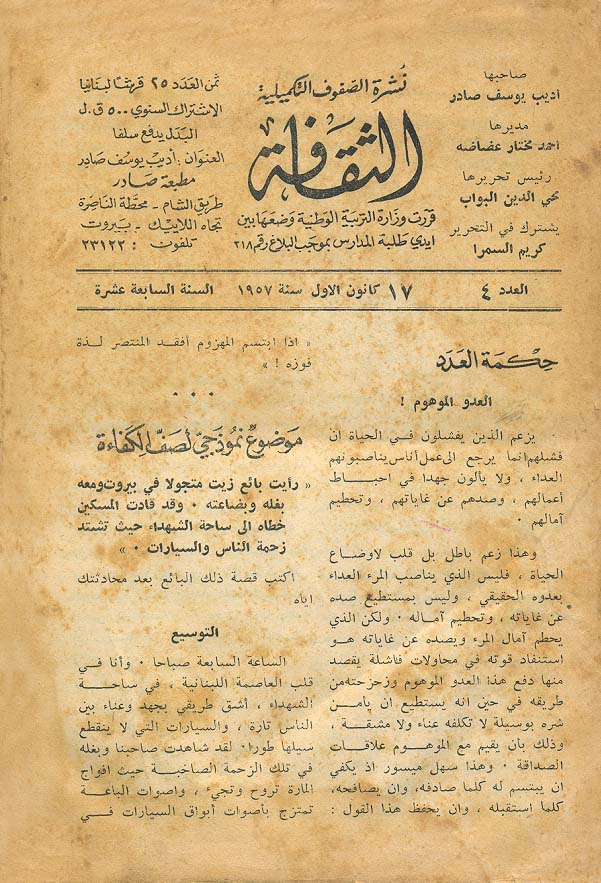 صاحبها
اديب يوسف صادر
مديرها
احمد مختار عضاضه
رئيس تحريرها
محي الدين البواب
يشترك في التحرير
كريم السمرا
نُشرة الصفوف التكميلية
الثقافة
قررت وزارة التربية الوطنية وضعها بين
ايدي طلبة المدارس بموجب البلاغ رقم ٣١٨
ثمن العدد ٢٥ قرشا لبنانيا
الاشتراك السنوي ٥٠٠ ق.ل
البدل يدفع سلفا
العنوان : أديب يوسف صادر
مطبعة صادر
طريق الشام - محطة الناصرة
تجاه اللاييك - بيروت
تلفون : ٢٣١٢٢
العدد ٤
١٧ كانون الاول سنة ١٩٥٧
السنة السابعة عشرة
حكمة العدد
العدو الموهوم !
يزعم الذين يفشلون في الحياة ان
فشلهم انما يرجع الى عمل أناس يناصبونهم
العداء ، ولا يألون جهدا في احباط
أعمالهم ، وصدهم عن غاياتهم ، وتحطيم
آمالهم .
وهذا زعم باطل بل قلب لاوضاع
الحياة ، فليس الذي يناصب المرء العداء
بعدوه الحقيقي ، وليس بمستطيع صده
عن غاياته ، وتحطيم آماله . ولكن الذي
يحطم آمال المرء ويصده عن غاياته هو
استنفاد قوته في محاولات فاشلة يقصد
منها دفع هذا العدو الموهوم وزحزحته من
طريقه في حين انه يستطيع ان يأمن
شره بوسيلة لا تكلفه عناء ولا مشقة ،
وذلك بأن يقيم مع الموهوم علاقات
الصداقة . وهذا سهل ميسور اذ يكفي
ان يبتسم له كلما صادفه، وان يصافحه،
كلما استقبله ، وان يحفظ هذا القول :
« اذا ابتسم المهزوم أفقد المنتصر لذة
فوزه ! »
. . .
موضوع نموذجي لصف الكفاءة
« رأيت بائع زيت متجولا في بيروت ومعه
بغله وبضاعته . وقد قادت المسكين
خطاه الى ساحة الشهداء حيث تشتد
زحمة الناس والسيارات . »
اكتب قصة ذلك البائع بعد محادثتك
اياه
التوسيع
الساعة السابعة صباحا . وأنا في
قلب العاصمة اللبنانية ، في ساحة
الشهداء ، أشق طريقي بجهد وعناء بين
الناس تارة ، والسيارات التي لا ينقطع
سيلها طورا . لقد شاهدت صاحبنا وبغله
في تلك الزحمة الصاخبة حيث افواج
المارة تروح وتجيء ، واصوات الباعة
تمتزج بأصوات أبواق السيارات في